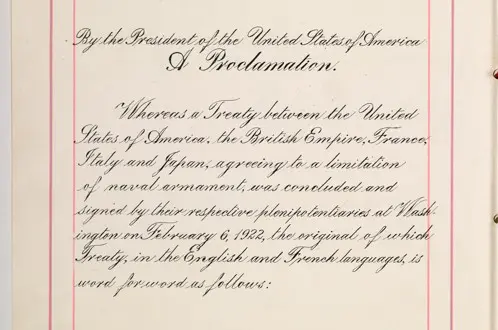 By the President of the United States of America
A Proclamation.
Whereas a Treaty between the United
States of America, the British Empire, France,
Italy and Japan, agreeing to a limitation
of naval armament, was concluded and
signed by their respective plenipotentiaries at Wash-
ington on February 6, 1922, the original of which
Treaty, in the English and French languages, is
word for word as follows: